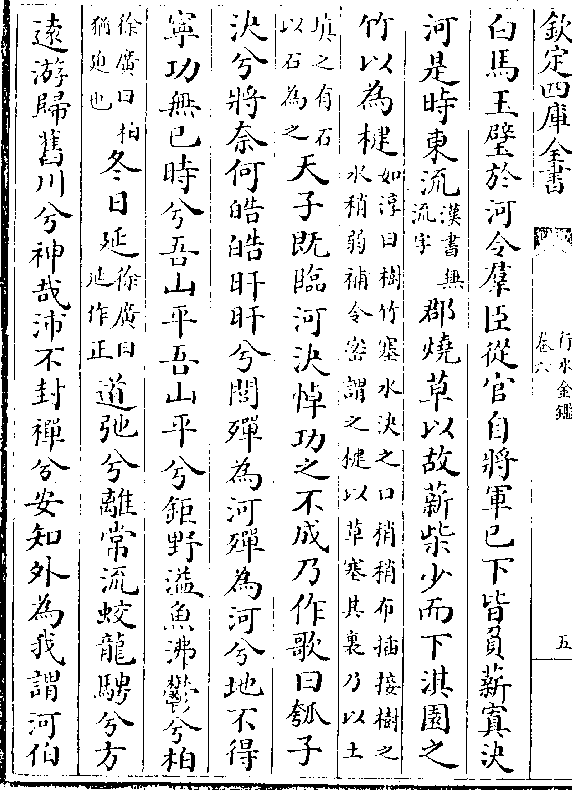 欽定四庫全書
行水金鑑
卷六
五
白馬玉璧於河令羣臣從官自將軍已下皆負薪寘決
河是時東流漢書無
流字郡燒草以故薪柴少而下淇園之
竹以為楗如淳曰樹竹塞水決之口稍稍布插接樹之
水稍弱補令密謂之楗以草塞其裏乃以土
填之有石
以石為之天子既臨河決悼功之不成乃作歌曰瓠子
決兮將奈何皓皓旰旰兮閭殫為河殫為河兮地不得
寧功無已時兮吾山平吾山平兮鉅野溢魚沸鬱兮柏
徐廣曰柏
猶迫也冬日延徐廣曰
延作正道弛兮離常流蛟龍騁兮方
逺游歸舊川兮神哉沛不封禪兮安知外為我謂河伯